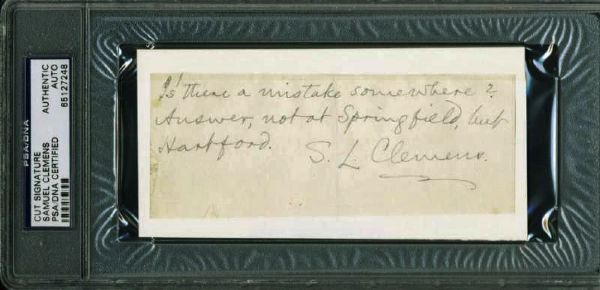 PSA/DNA
CUT SIGNATURE
SAMUEL CLEMENS
PSA/DNA CERTIFIED
AUTHENTIC
AUTO
65127248
Is there a mistake somewhere?
Answer, not at Springfield, but
Hartford. S. L. Clemens.